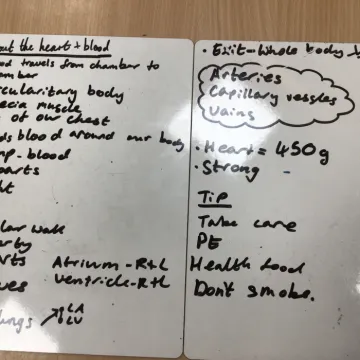 out the heart + blood
od travels from chamber to
amber
rcularitary body
ecia muscle
of our chest
ds blood around our body
mp - blood
parts
ht
lar walk
erby
arts Atrium - R+L
ves Ventricle - R+L
lungs LA
LV
• Exit - Whole body
Arteries
Capillary vessles
Vains
• Heart = 450g
• Strong
Tip
Take care
PE
Health food
Don't smoke.